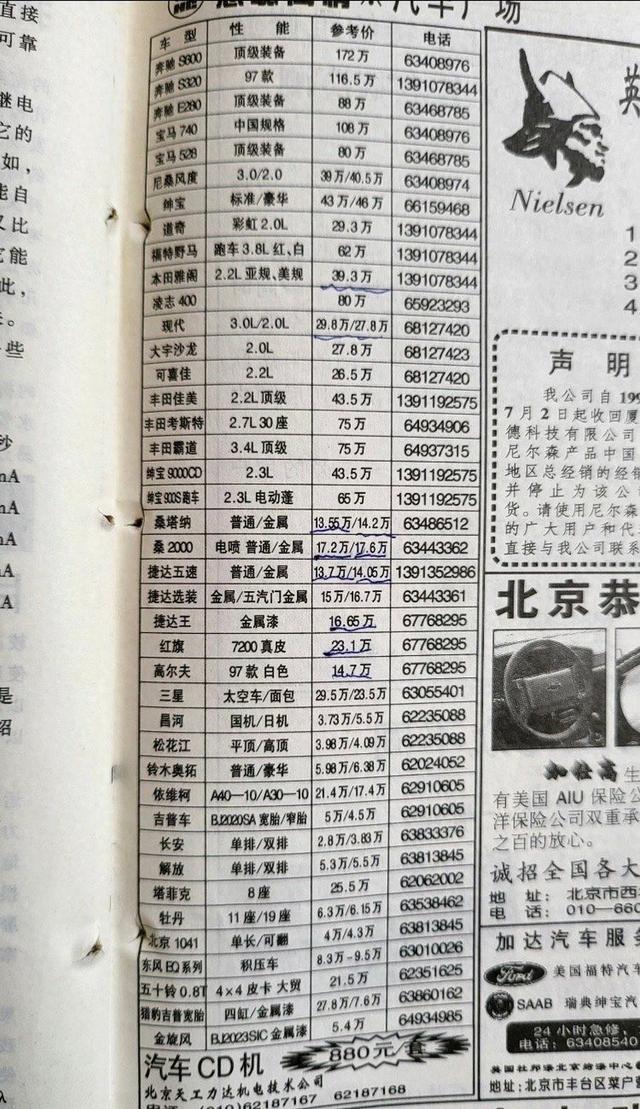 直接
可靠
继电
它的
如,
能自
又比
它能
此,
些
秒
mA
mA
mA
A
是
绍
汽车广场
车 型 性 能 参考价 电话
奔驰 S600 顶级装备 172 万 63408976
奔驰 S320 97 款 116.5 万 1391078344
奔驰 E280 顶级装备 88 万 63468785
宝马 740 中国规格 108 万 63408976
宝马 528 顶级装备 80 万 63468785
尼桑风度 3.0/2.0 39 万/40.5 万 63408974
绅宝 标准/豪华 43 万/46 万 66159468
道奇 彩虹 2.0L 29.3 万 1391078344
福特野马 跑车 3.8L 红、白 62 万 1391078344
本田雅阁 2.2L 亚规、美规 39.3 万 1391078344
凌志 400 80 万 65923293
现代 3.0L/2.0L 29.8 万/27.8 万 68127420
大宇沙龙 2.0L 27.8 万 68127423
可喜佳 2.2L 26.5 万 68127420
丰田佳美 2.2L 顶级 43.5 万 1391192575
丰田考斯特 2.7L 30 座 75 万 64934906
丰田霸道 3.4L 顶级 75 万 64937315
绅宝 9000CD 2.3L 43.5 万 1391192575
绅宝 900S 跑车 2.3L 电动蓬 65 万 1391192575
桑塔纳 普通/金属 13.55 万/14.2 万 63486512
桑 2000 电喷 普通/金属 17.2 万/17.6 万 63443362
捷达五速 普通/金属 13.7 万/14.05 万 1391352986
捷达选装 金属/五汽门金属 15 万/16.7 万 63443361
捷达王 金属漆 16.65 万 67768295
红旗 7200 真皮 23.1 万 67768295
高尔夫 97 款 白色 14.7 万 67768295
三星 太空车/面包 29.5 万/23.5 万 63055401
昌河 国机/日机 3.73 万/5.5 万 62235088
松花江 平顶/高顶 3.98 万/4.09 万 62235088
铃木奥拓 普通/豪华 5.98 万/6.38 万 62024052
依维柯 A40—10/A30—10 21.4 万/17.4 万 62910605
吉普车 BJ2020SA 宽胎/窄胎 5 万/4.5 万 62910605
长安 单排/双排 2.8 万/3.83 万 63833376
解放 单排/双排 5.3 万/5.5 万 63813845
塔菲克 8 座 25.5 万 62062002
牡丹 11 座/19 座 6.3 万/6.15 万 63538462
北京 1041 单长/可翻 4 万/4.3 万 63813845
东风 EQ 系列 积压车 8.3 万－9.5 万 63010026
五十铃 0.8T 4×4 皮卡 大贸 21.5 万 62351625
猎豹吉普宽胎 四缸/金属漆 27.8 万/7.6 万 63860162
金旋风 BJ2023SIC 金属漆 5.4 万 64934985
汽车 CD 机 880元/套
北京天工力达机电技术公司
(010)62187167 62187168
英
Nielsen
1
2
3
4
声 明
我公司自 199
7 月 2 日起收回厦
德科技有限公司
尼尔森产品中国
地区总经销的经销
并停止为该公
货。请使用尼尔森
的广大用户和代
直接与我公司联系
北京恭
加仕高 生
有美国 AIU 保险公
洋保险公司双重承
之百的放心。
诚招全国各大
地 址: 北京市西
电 话: 010—660
加达汽车服务
Ford 美国福特汽车
SAAB 瑞典绅宝汽
24 小时急修、
电话: 63408540
地址:北京市丰台区菜户